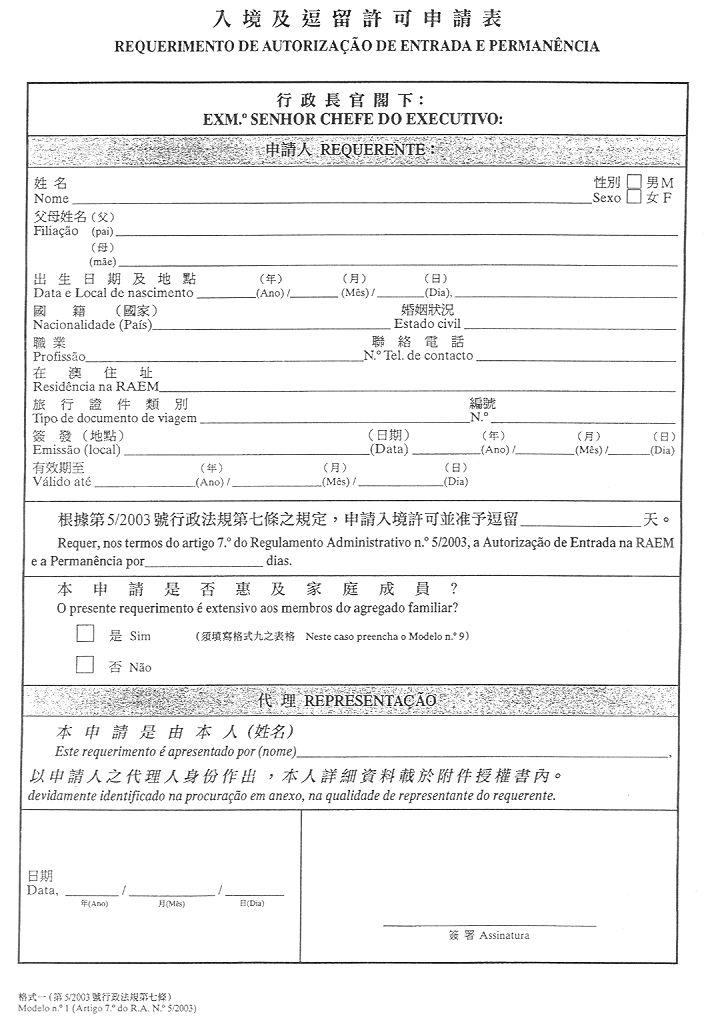 入境及逗留許可申請表
REQUERIMENTO DE AUTORIZAÇÃO DE ENTRADA E PERMANÊNCIA
行政長官閣下：
EXM.º SENHOR CHEFE DO EXECUTIVO:
申請人 REQUERENTE：
姓名 性別 男M
Nome Sexo 女F
父母姓名（父）
Filiação (pai)
（母）
(mãe)
出生日期及地點 （年） （月） （日）
Data e Local de nascimento (Ano) / (Mês) / (Dia),
國籍（國家） 婚姻狀況
Nacionalidade (País) Estado civil
職業 聯絡電話
Profissão N.º Tel. de contacto
在澳住址
Residência na RAEM
旅行證件類別 編號
Tipo de documento de viagem N.º
簽發（地點） （日期） （年） （月） （日）
Emissão (local) (Data) (Ano) / (Mês) / (Dia)
有效期至 （年） （月） （日）
Válido até (Ano) / (Mês) / (Dia)
根據第5/2003號行政法規第七條之規定，申請入境許可並准予逗留 天。
Requer, nos termos do artigo 7.º do Regulamento Administrativo n.º 5/2003, a Autorização de Entrada na RAEM
e a Permanência por dias.
本申請是否惠及家庭成員？
O presente requerimento é extensivo aos membros do agregado familiar?
是 Sim （須填寫格式九之表格 Neste caso preencha o Modelo n.º 9）
否 Não
代理 REPRESENTAÇÃO
本申請是由本人（姓名）
Este requerimento é apresentado por (nome) ,
以申請人之代理人身份作出，本人詳細資料載於附件授權書內。
devidamente identificado na procuração em anexo, na qualidade de representante do requerente.
日期
Data, / /
年(Ano) 月(Mês) 日(Dia)
簽署 Assinatura
格式一（第5/2003號行政法規第七條）
Modelo n.º 1 (Artigo 7.º do R.A. N.º 5/2003)